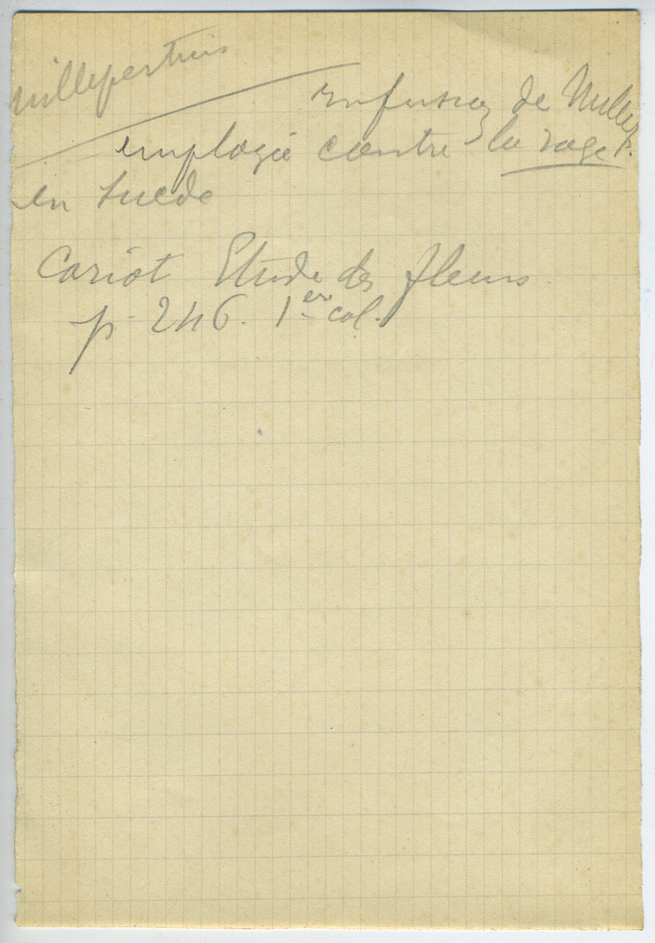 Millepertuis
Infusion de Millep.
employée contre la rage
en Suède
Cariot Etude des fleurs
p. 246. 1er col.